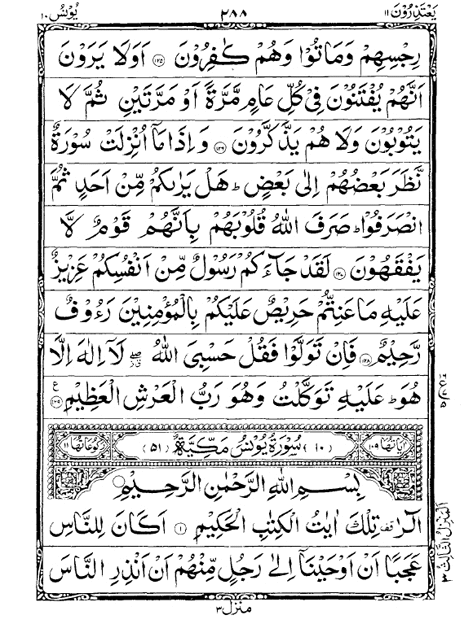 يَعْتَذِرُوْنَ ١١ ٢٨٨ يُوْنُس ١٠
رِجْسِهِمْ وَمَاتُوْا وَهُمْ كٰفِرُوْنَ ﴿١٢٥﴾ اَوَلَا يَرَوْنَ
اَنَّهُمْ يُفْتَنُوْنَ فِيْ كُلِّ عَامٍ مَّرَّةً اَوْ مَرَّتَيْنِ ثُمَّ لَا
يَتُوْبُوْنَ وَلَا هُمْ يَذَّكَّرُوْنَ ﴿١٢٦﴾ وَاِذَا مَآ اُنْزِلَتْ سُوْرَةٌ
نَّظَرَ بَعْضُهُمْ اِلٰى بَعْضٍ ؕ هَلْ يَرٰىكُمْ مِّنْ اَحَدٍ ثُمَّ
انْصَرَفُوْا ؕ صَرَفَ اللّٰهُ قُلُوْبَهُمْ بِاَنَّهُمْ قَوْمٌ لَّا
يَفْقَهُوْنَ ﴿١٢٧﴾ لَقَدْ جَآءَكُمْ رَسُوْلٌ مِّنْ اَنْفُسِكُمْ عَزِيْزٌ
عَلَيْهِ مَا عَنِتُّمْ حَرِيْصٌ عَلَيْكُمْ بِالْمُؤْمِنِيْنَ رَءُوْفٌ
رَّحِيْمٌ ﴿١٢٨﴾ فَاِنْ تَوَلَّوْا فَقُلْ حَسْبِيَ اللّٰهُ ۖ لَآ اِلٰهَ اِلَّا
هُوَ ؕ عَلَيْهِ تَوَكَّلْتُ وَهُوَ رَبُّ الْعَرْشِ الْعَظِيْمِ ﴿١٢٩﴾ ع
اٰيَاتُهَا ١٠٩ (١٠) سُوْرَةُ يُوْنُسَ مَكِّيَّةٌ (٥١) رُكُوْعَاتُهَا ١١
بِسْمِ اللّٰهِ الرَّحْمٰنِ الرَّحِيْمِ
الٓرٰ ۟ تِلْكَ اٰيٰتُ الْكِتٰبِ الْحَكِيْمِ ﴿١﴾ اَكَانَ لِلنَّاسِ
عَجَبًا اَنْ اَوْحَيْنَآ اِلٰى رَجُلٍ مِّنْهُمْ اَنْ اَنْذِرِ النَّاسَ
منزل ٣
المنزل الثالث ٣